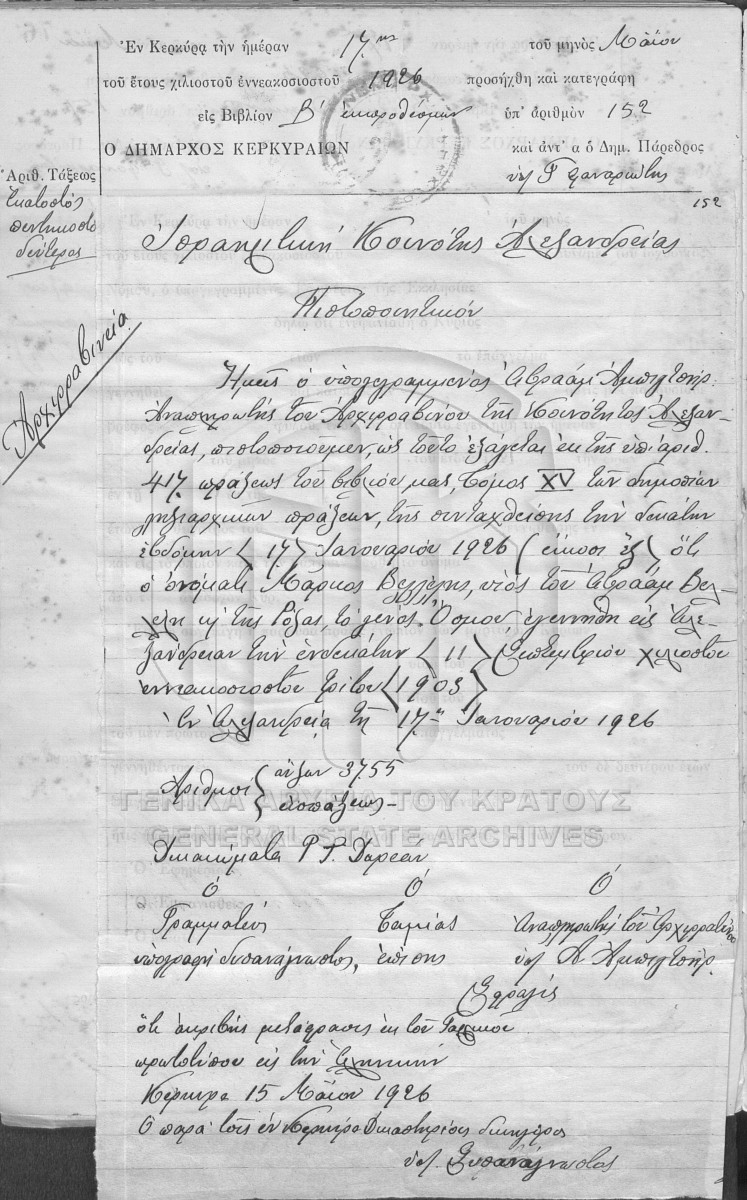 Ἐν Κερκύρᾳ τὴν ἡμέραν 17ην τοῦ μηνὸς Μαΐου
τοῦ ἔτους χιλιοστοῦ ἐννεακοσιοστοῦ 1926 προσήχθη καὶ κατεγράφη
εἰς Βιβλίον Β' ἐκπροθέσμων ὑπ' ἀριθμὸν 152
Ο ΔΗΜΑΡΧΟΣ ΚΕΡΚΥΡΑΙΩΝ καὶ ἀντ' α ὁ Δημ. Πάρεδρος
Ἀριθ. Τάξεως
ἑκατοστός
πεντηκοστό
δεύτερος
152
Ἰσραηλιτική Κοινότης Ἀλεξανδρείας
Πιστοποιητικόν
Ἀρχιρραβινεία
Ἡμεῖς ὁ ὑπογεγραμμένος Ἀβραάμ
Ἀναπληρωτής τοῦ Ἀρχιρραβίνου τῆς Κοινότητος Ἀλεξαν-
δρείας, πιστοποιοῦμεν, ὡς τοῦτο ἐξάγεται ἐκ τῆς ὑπ' ἀριθ.
417 πράξεως τοῦ βιβλίου μας, Τόμος XV τῶν δημοσίων
ληξιαρχικῶν πράξεων, τῆς συνταχθείσης τὴν δεκάτην
ἑβδόμην (17) Ἰανουαρίου 1926 (εἴκοσι ἕξ) ὅτι
ὁ ὀνόματι Μάρκος Βελλέλης, υἱός τοῦ Ἀβραάμ Βελ-
λέλη κ τῆς Ρόζας, τὸ γένος Ὄσμου ἐγεννήθη εἰς Ἀλε-
ξάνδρειαν τὴν ἑνδεκάτην (11) Σεπτεμβρίου χιλιοστοῦ
ἐννεακοσιοστοῦ τρίτου (1903)
Ἐν Ἀλεξανδρείᾳ τῇ 17ῃ Ἰανουαρίου 1926
Ἀριθμοί { αὔξων 3755
εἰσπράξεως -
ΓΕΝΙΚΑ ΑΡΧΕΙΑ ΤΟΥ ΚΡΑΤΟΥΣ
GENERAL STATE ARCHIVES
Δικαιώματα P.T.
Ὁ Ὁ Ὁ
Γραμματεύς Ταμίας Ἀναπληρωτής τοῦ Ἀρχιρραβίνου
ὑπογραφή δυσανάγνωστος, ἐπίσης ὑπ. Α.
Σφραγίς
ὅτι ἀκριβής μετάφρασις ἐκ τοῦ Γαλλικοῦ
πρωτοτύπου εἰς τὴν Ἑλληνικήν
Κέρκυρα 15 Μαΐου 1926
Ὁ παρά τοῖς ἐν Κερκύρᾳ Δικαστηρίοις δικηγόρος
ὑπ. Δυσανάγνωστος